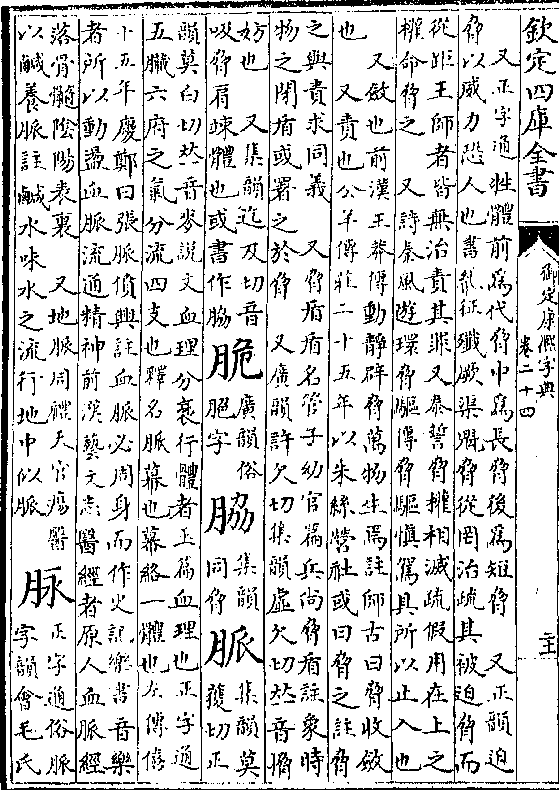 欽定四庫全書
又正字通牲體前為代脅中為長脅後為短脅 又正韻迫
脅以威力恐人也書征殲厥渠魁脅從罔治疏其被迫脅而
從距王師者皆無治責其罪又泰誓脅權相滅疏假用在上之
權命脅之 又詩秦風遊環脅驅傳脅驅慎駕具所以止入也
又斂也前漢王莽傳動靜辟脅萬物生焉註師古曰脅收斂
也 又責也公羊傳莊二十五年以朱絲營社或曰脅之註脅
之與責求同義 又脅盾盾名管子幼官篇兵尚脅盾註象時
物之閉盾或署之於脅 又廣韻許欠切集韻虛欠切𠀤音
妨也 又集韻迄及切音
吸脅肩竦體也或書作脇
脆 廣韻俗
脃字
脇 集韻
同脅
脈 集韻莫
獲切正
韻莫白切𠀤音麥說文血理分衺行體者玉篇血理也正字通
五臟六府之氣分流四支也釋名脈幕也幕絡一體也左傳僖
十五年慶鄭曰張脈僨興註血脈必周身而作史記樂書音樂
者所以動盪血脈流通精神前漢藝文志醫經者原人血脈經
落骨髓陰陽表裏 又地脈周禮天官瘍醫
以鹹養脈註鹹水味水之流行地中似脈
脉 正字通俗脈
字韻會毛氏
御定康熙字典
卷二十四